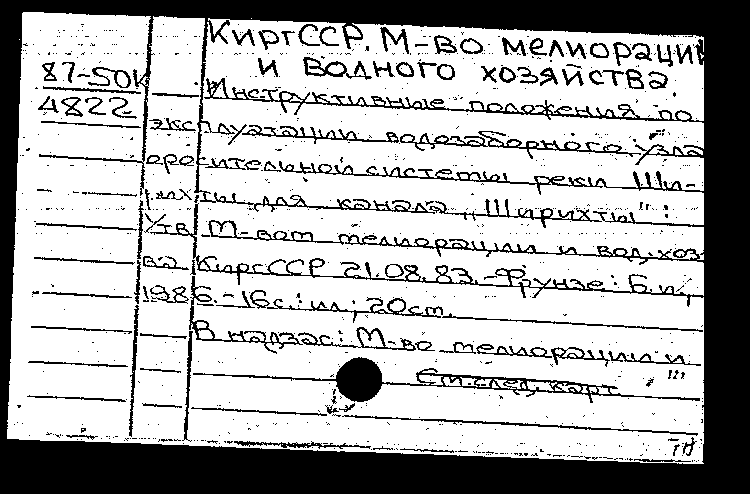 КиргССР. М-во мелиорации
и водного хозяйства.
87-50К
4822
Инструктивные положения по
эксплуатации водозаборного узла
оросительной системы реки Ши-
рихты для канала „Ширихты":
Утв М-вом мелиорации и вод.хоз-
ва КиргССР 21.08.83.-Фрунзе: Б.и.,
1986.-16с.: ил; 20см.
В надзаг: М-во мелиорации и
См.след.карт.